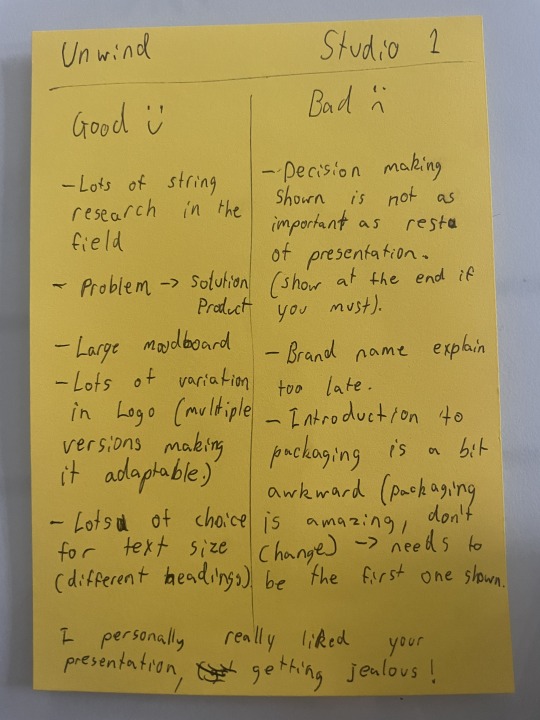 Unwind Studio 1
Good :)
- Lots of string
research in the
field
- Problem -> solution
Product
- Large moodboard
- Lots of variation
in Logo (multiple
versions making
it adaptable.)
- Lots of choice
for text size
(different headings)
Bad :(
- Decision making
shown is not as
important as rest
of presentation.
(show at the end if
you must).
- Brand name explain
too late.
- Introduction to
packaging is a bit
awkward (packaging
is amazing, don't
change) -> needs to
be the first one shown.
I personally really liked your
presentation, getting jealous!